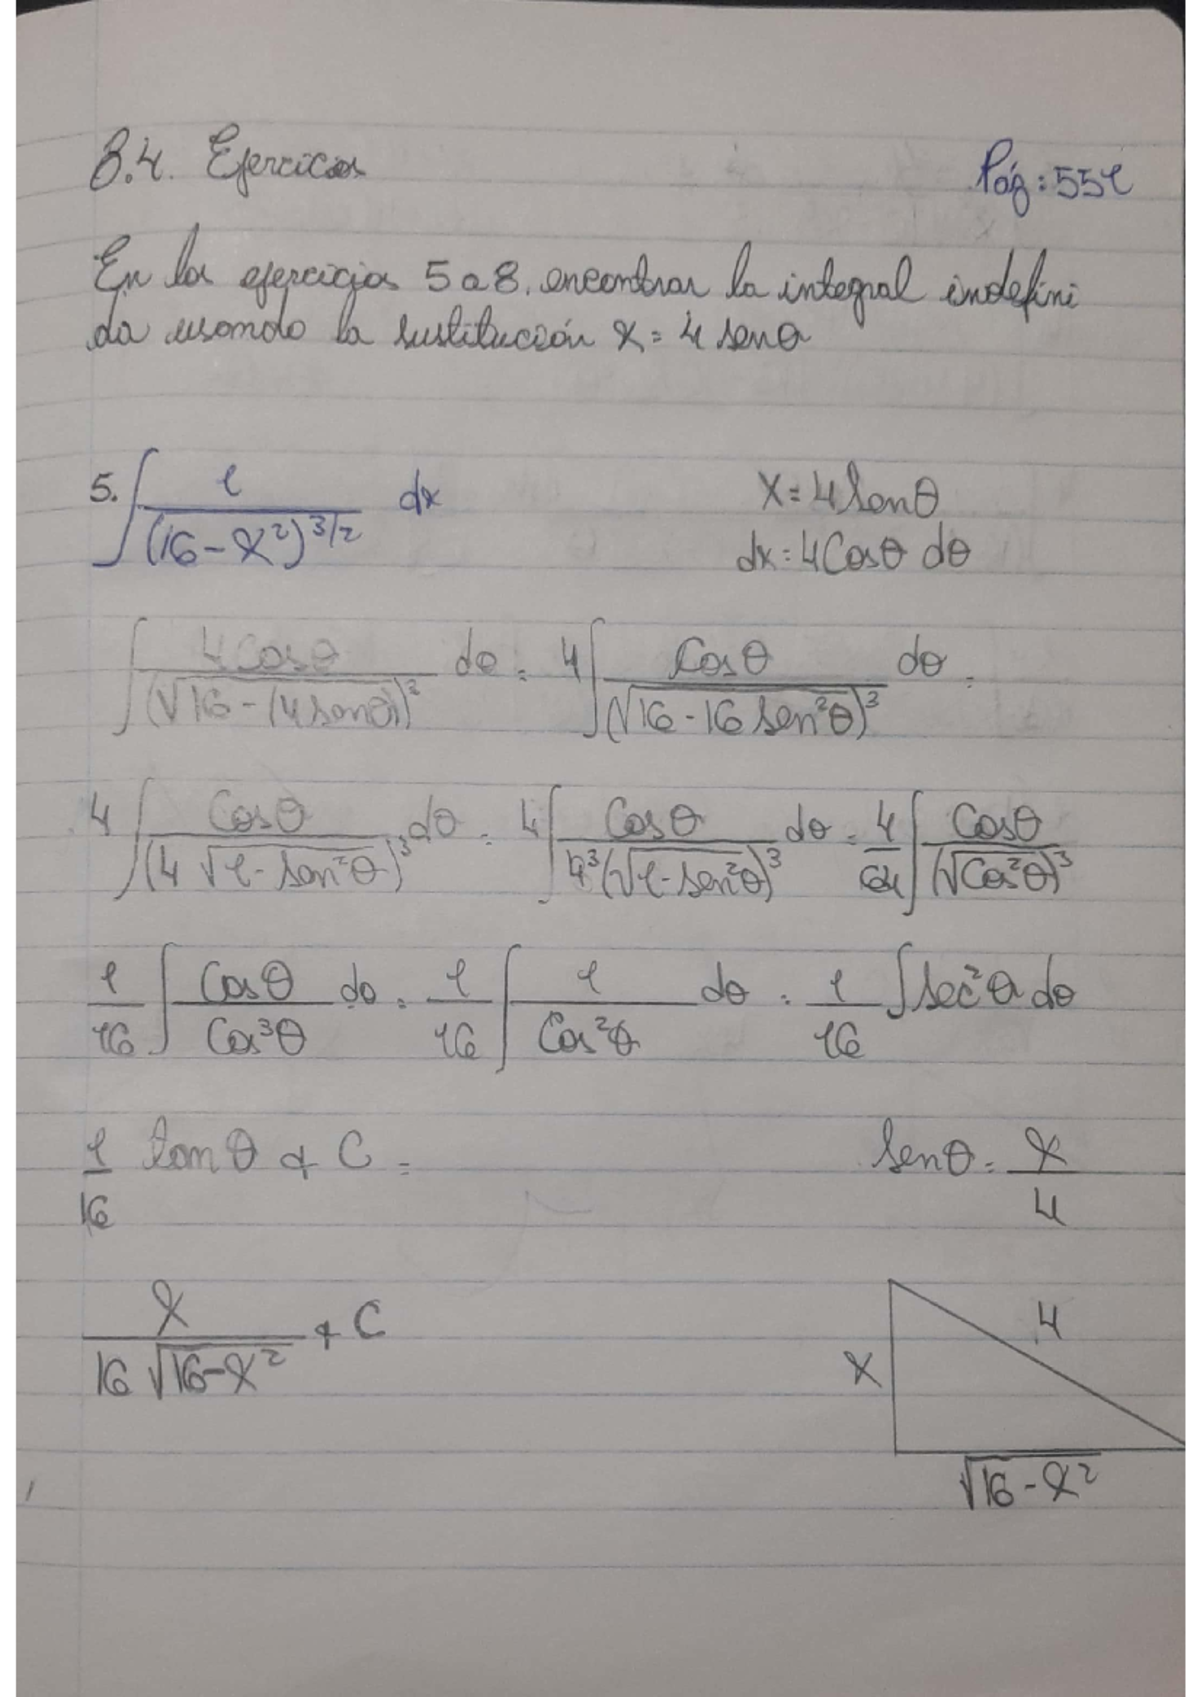 8.4. Ejercicios Pág: 551
En los ejercicios 5 a 8, encontrar la integral indefini
da usando la sustitución x = 4 senθ
5. ∫ 1/(16-x²)^3/2 dx x = 4 senθ
dx = 4 Cosθ dθ
∫ 4Cosθ/(√16-(4senθ))² dθ = 4∫ Cosθ/(√16-16 sen²θ)³ dθ =
4∫ Cosθ/(4√1-sen²θ)³ dθ = 4∫ Cosθ/4³(√1-sen²θ)³ dθ = 4/64 ∫ Cosθ/(√Cos²θ)³
1/16 ∫ Cosθ/Cos³θ dθ = 1/16 ∫ 1/Cos²θ dθ = 1/16 ∫ sec²θ dθ
1/16 tanθ + C = senθ = x/4
x/16√16-x² + C
4
x
√16-x²